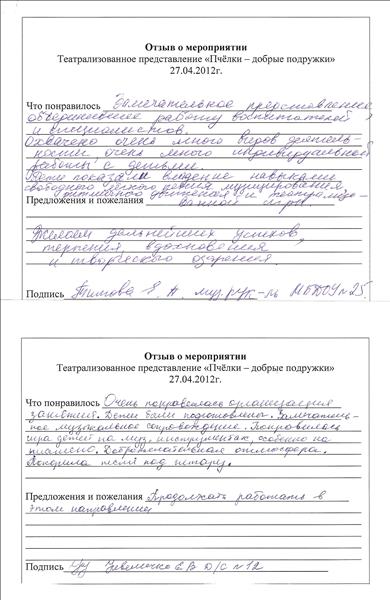 Отзыв о мероприятии
Театрализованное представление «Пчёлки – добрые подружки»
27.04.2012г.
Что понравилось Замечательное представление,
объединившее работу воспитателей
и специалистов.
Охвачено очень много видов деятель-
ности, очень много индивидуальной
работы с детьми.
Дети показали владение навыками
свободного детского пения, музицирования,
движения и театрализо-
Предложения и пожелания ванной игры.
Желаем дальнейших успехов,
терпения, вдохновения
и творческого озарения.
Подпись Титова Е. А. муз.рук-ль МБДОУ №25.
Отзыв о мероприятии
Театрализованное представление «Пчёлки – добрые подружки»
27.04.2012г.
Что понравилось Очень понравилась организация
занятия. Дети были подготовлены. Замечатель-
ное музыкальное сопровождение. Понравилась
игра детей на муз. инструментах, особенно на
пианино. Доброжелательная атмосфера.
песня под гитару.
Предложения и пожелания Продолжать работать в
этом направлении
Подпись Е В Д/С №12